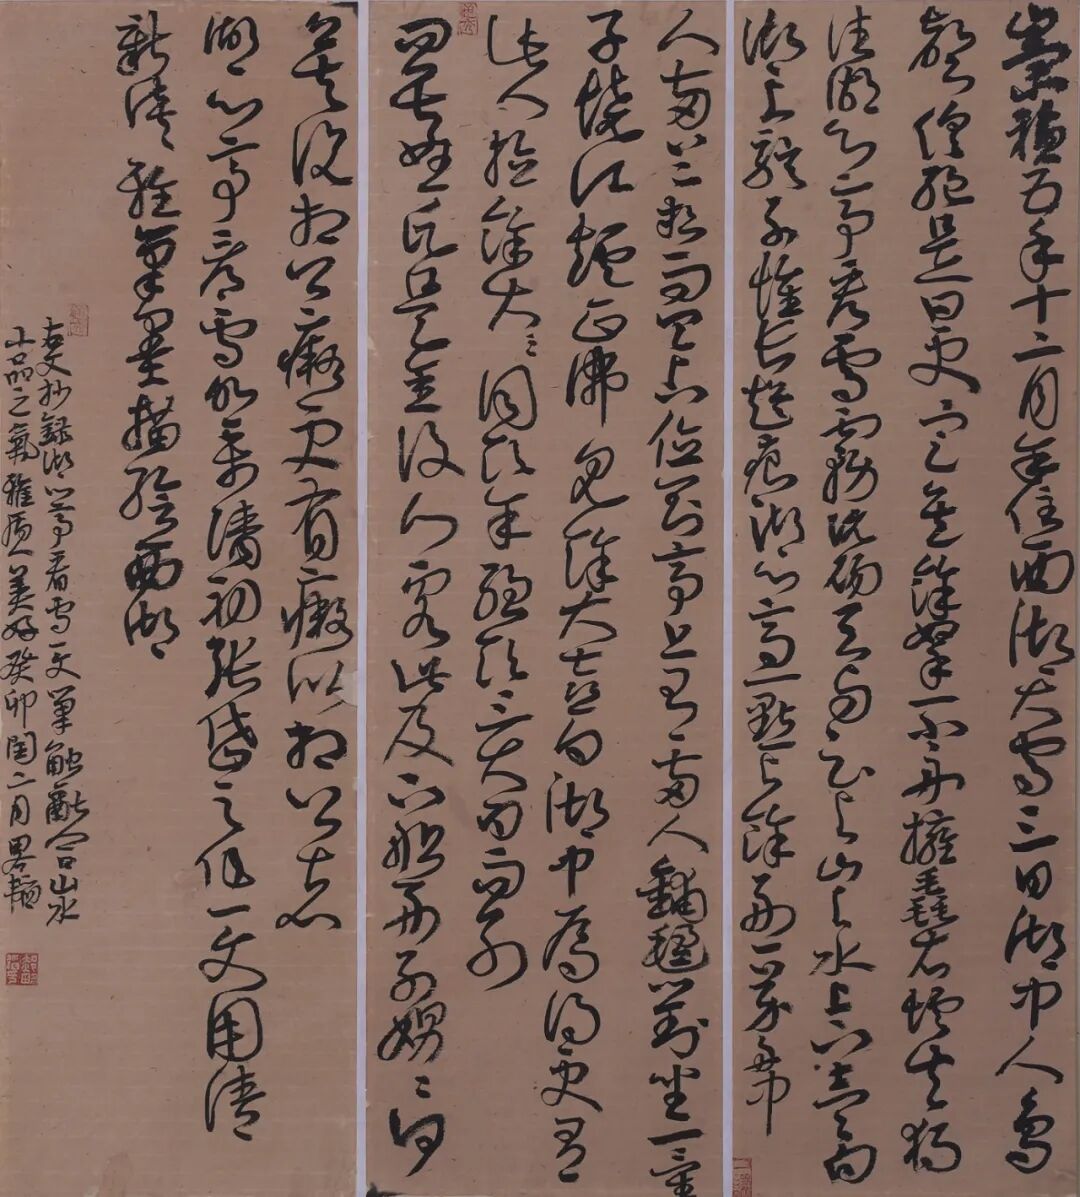 崇禎五年十二月余住西湖大雪三日湖中人鳥
聲俱絕是日更定矣余拏一小舟擁毳衣爐火獨
往湖心亭看雪霧凇沆碭天與雲與山與水上下一白
湖上影子惟長堤痕湖心亭一點與余舟一芥舟中
人兩三粒而已到亭上有兩人鋪氈對坐一童
子燒酒爐正沸見余大喜曰湖中焉得更有
此人拉余同飲余強飲三大白而別
問其姓氏是金陵人客此及下船舟子喃喃曰
莫說相公癡更有癡似相公者
湖心亭看雪為明末清初張岱之作一文用清
新淡雅筆墨描繪西湖
古文抄錄湖心亭看雪一文筆觸蘊含山水
小品之氣雅質美好癸卯閏二月